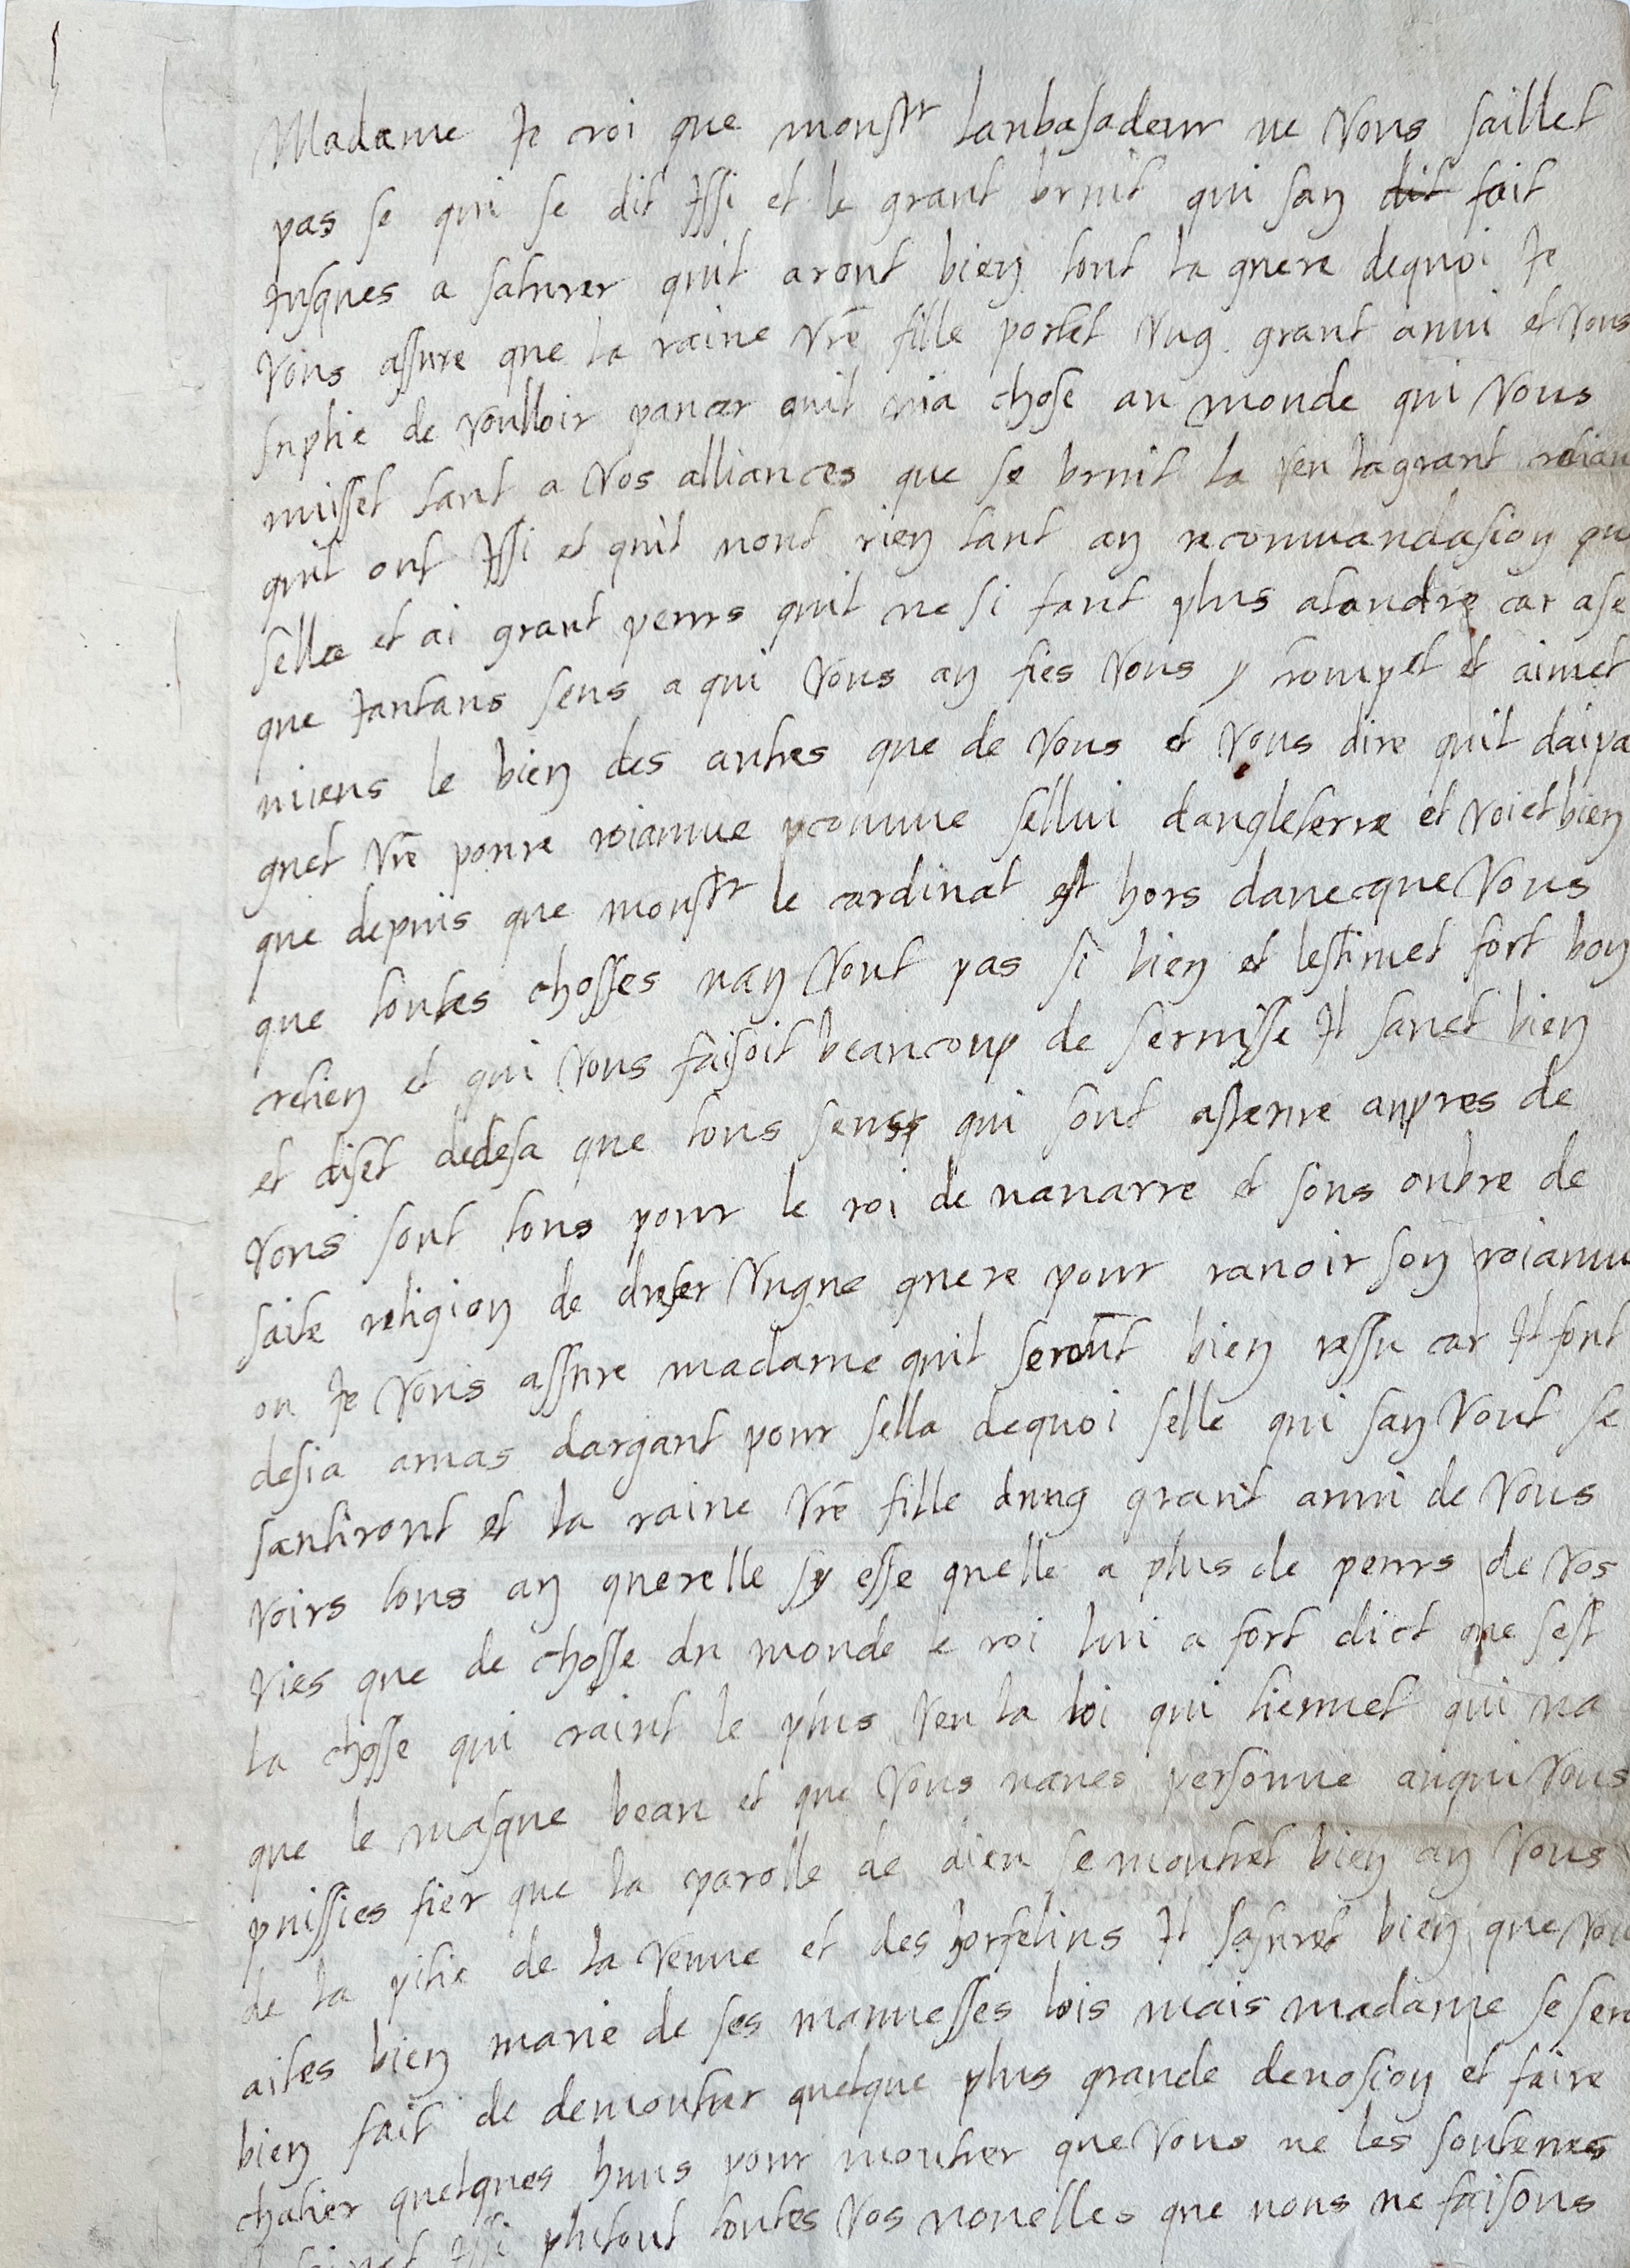 Madame Je croi que monsr lanbasadeur ne vous faillet
pas se qui se dit Issi et le grant bruit qui san dit fait
Jusques a sasurer quil aront bien tout la guere dequoi Je
vous assure que la raine vre fille portet ung grant anui et vous
suplie de voulloir pancer quil nia chose au monde qui vous
nuisset tant a vos alliances que se bruit la veu la grant
quil ont Issi et quil nont rien tant an recommandasion que
sella et ai grant peurs quil ne si fant plus atandre car a se
que Jantans seus a qui vous an fies vous y trompet et aimet
mieus le bien des autres que de vous et vous dire quil daipa
gnet vre poure roiaume comme sellui dangleterre et voiet bien
que depuis que monsr le cardinal est hors davecque vous
que toutes chosses nan vont pas si bien et lestimet fort bon
cretien et qui vous faisoit beaucoup de servisse Il savet bien
et diset dedesa que tous seus qui sont asteure aupres de
vous sont tous pour le roi de navarre et sous onbre de
saite religion de dreser vugne guere pour ravoir son roiaume
ou Je vous assure madame quil seront bien ressu car Il font
desia amas dargant pour sella dequoi selle qui san vont se
santiront et la raine vre fille dung grant anui de vous
voirs tous an querelle sy esse quelle a plus de peurs de vos
vies que de chosse du monde le roi lui a fort dict que sest
la chosse qui craint le plus veu la loi qui tiennet qui na
que le masque beau et que vous naves personne auqui vous
puissies fier que la parolle de dieu se montret bien an vous
de la pitie de la veuve et des orfelins Il sasuret bien que vou
aites bien marie de ses mauvesses lois mais madame se sero
bien fait de demontrer quelque plus grande devosion et faire
chatier quelques huns pour montrer que vous ne les soutenes
Issi plutout toutes vos nouelles que nous ne faisons